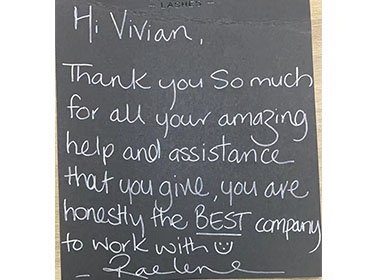 - LASHES -
Hi Vivian,
Thank you so much
for all your amazing
help and assistance
that you give, you are
honestly the BEST company
to work with ☺
- Raelene